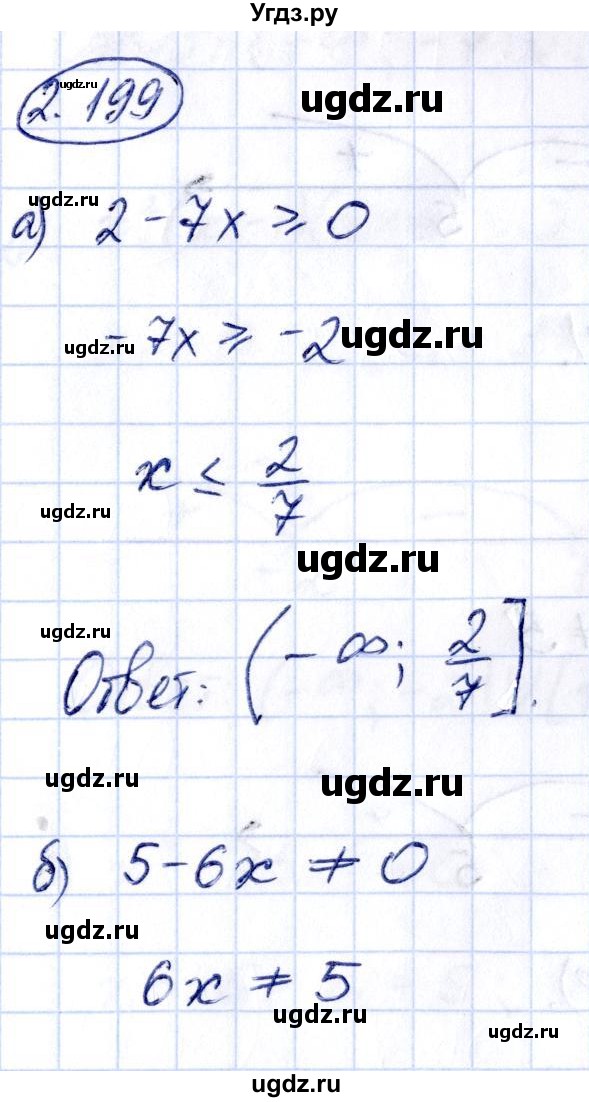 Угдз.ру
2.199
ugdz.ru
ugdz.ru
ugdz.ru
а) 2 - 7x ⩾ 0
ugdz.ru
-7x ⩾ -2
ugdz.ru
x ≤ 2/7
ugdz.ru
ugdz.ru
ugdz.ru
Ответ: (-∞; 2/7].
ugdz.ru
ugdz.ru
б) 5-6x ≠ 0
ugdz.ru
6x ≠ 5
ugdz.ru
ugdz.ru
ugdz.ru